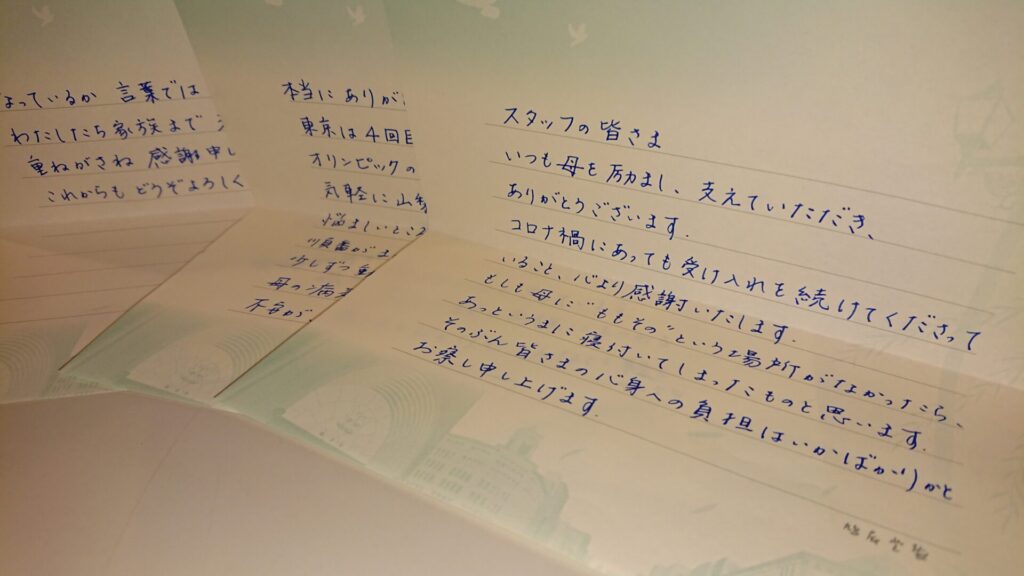 なっているか 言葉では
わたしたち家族まで
重ねがさね 感謝申し
これからも どうぞよろしく
本当に ありが
東京は4回目
オリンピックの
気軽に山
悩ましいところ
順番がま
少しずつ重
母の病
不安が
スタッフの皆さま
いつも母を励まし、支えていただき、
ありがとうございます.
コロナ禍にあっても受け入れを続けてくださって
いること、心より感謝いたします.
もしも母に“ももその”という場所がなかったら、
あっというまに寝付いてしまったものと思います.
そのぶん皆さまの心身への負担はいかばかりかと
お察し申し上げます.
鳩居堂製